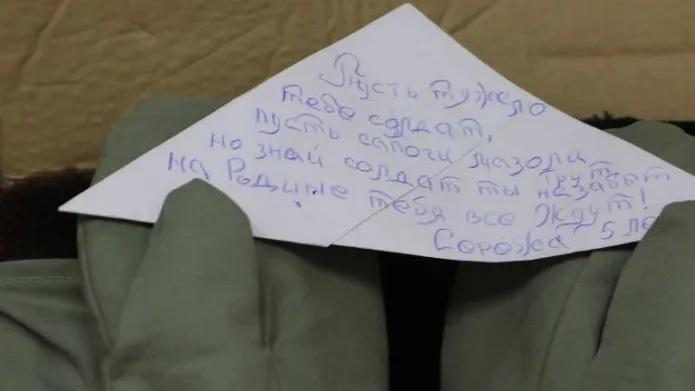 Пусть тяжело
тебе солдат,
пусть сапоги мазоли
трут
но знай солдат ты не забыт
на Родине тебя все ждут!
Серёжа 5 ле